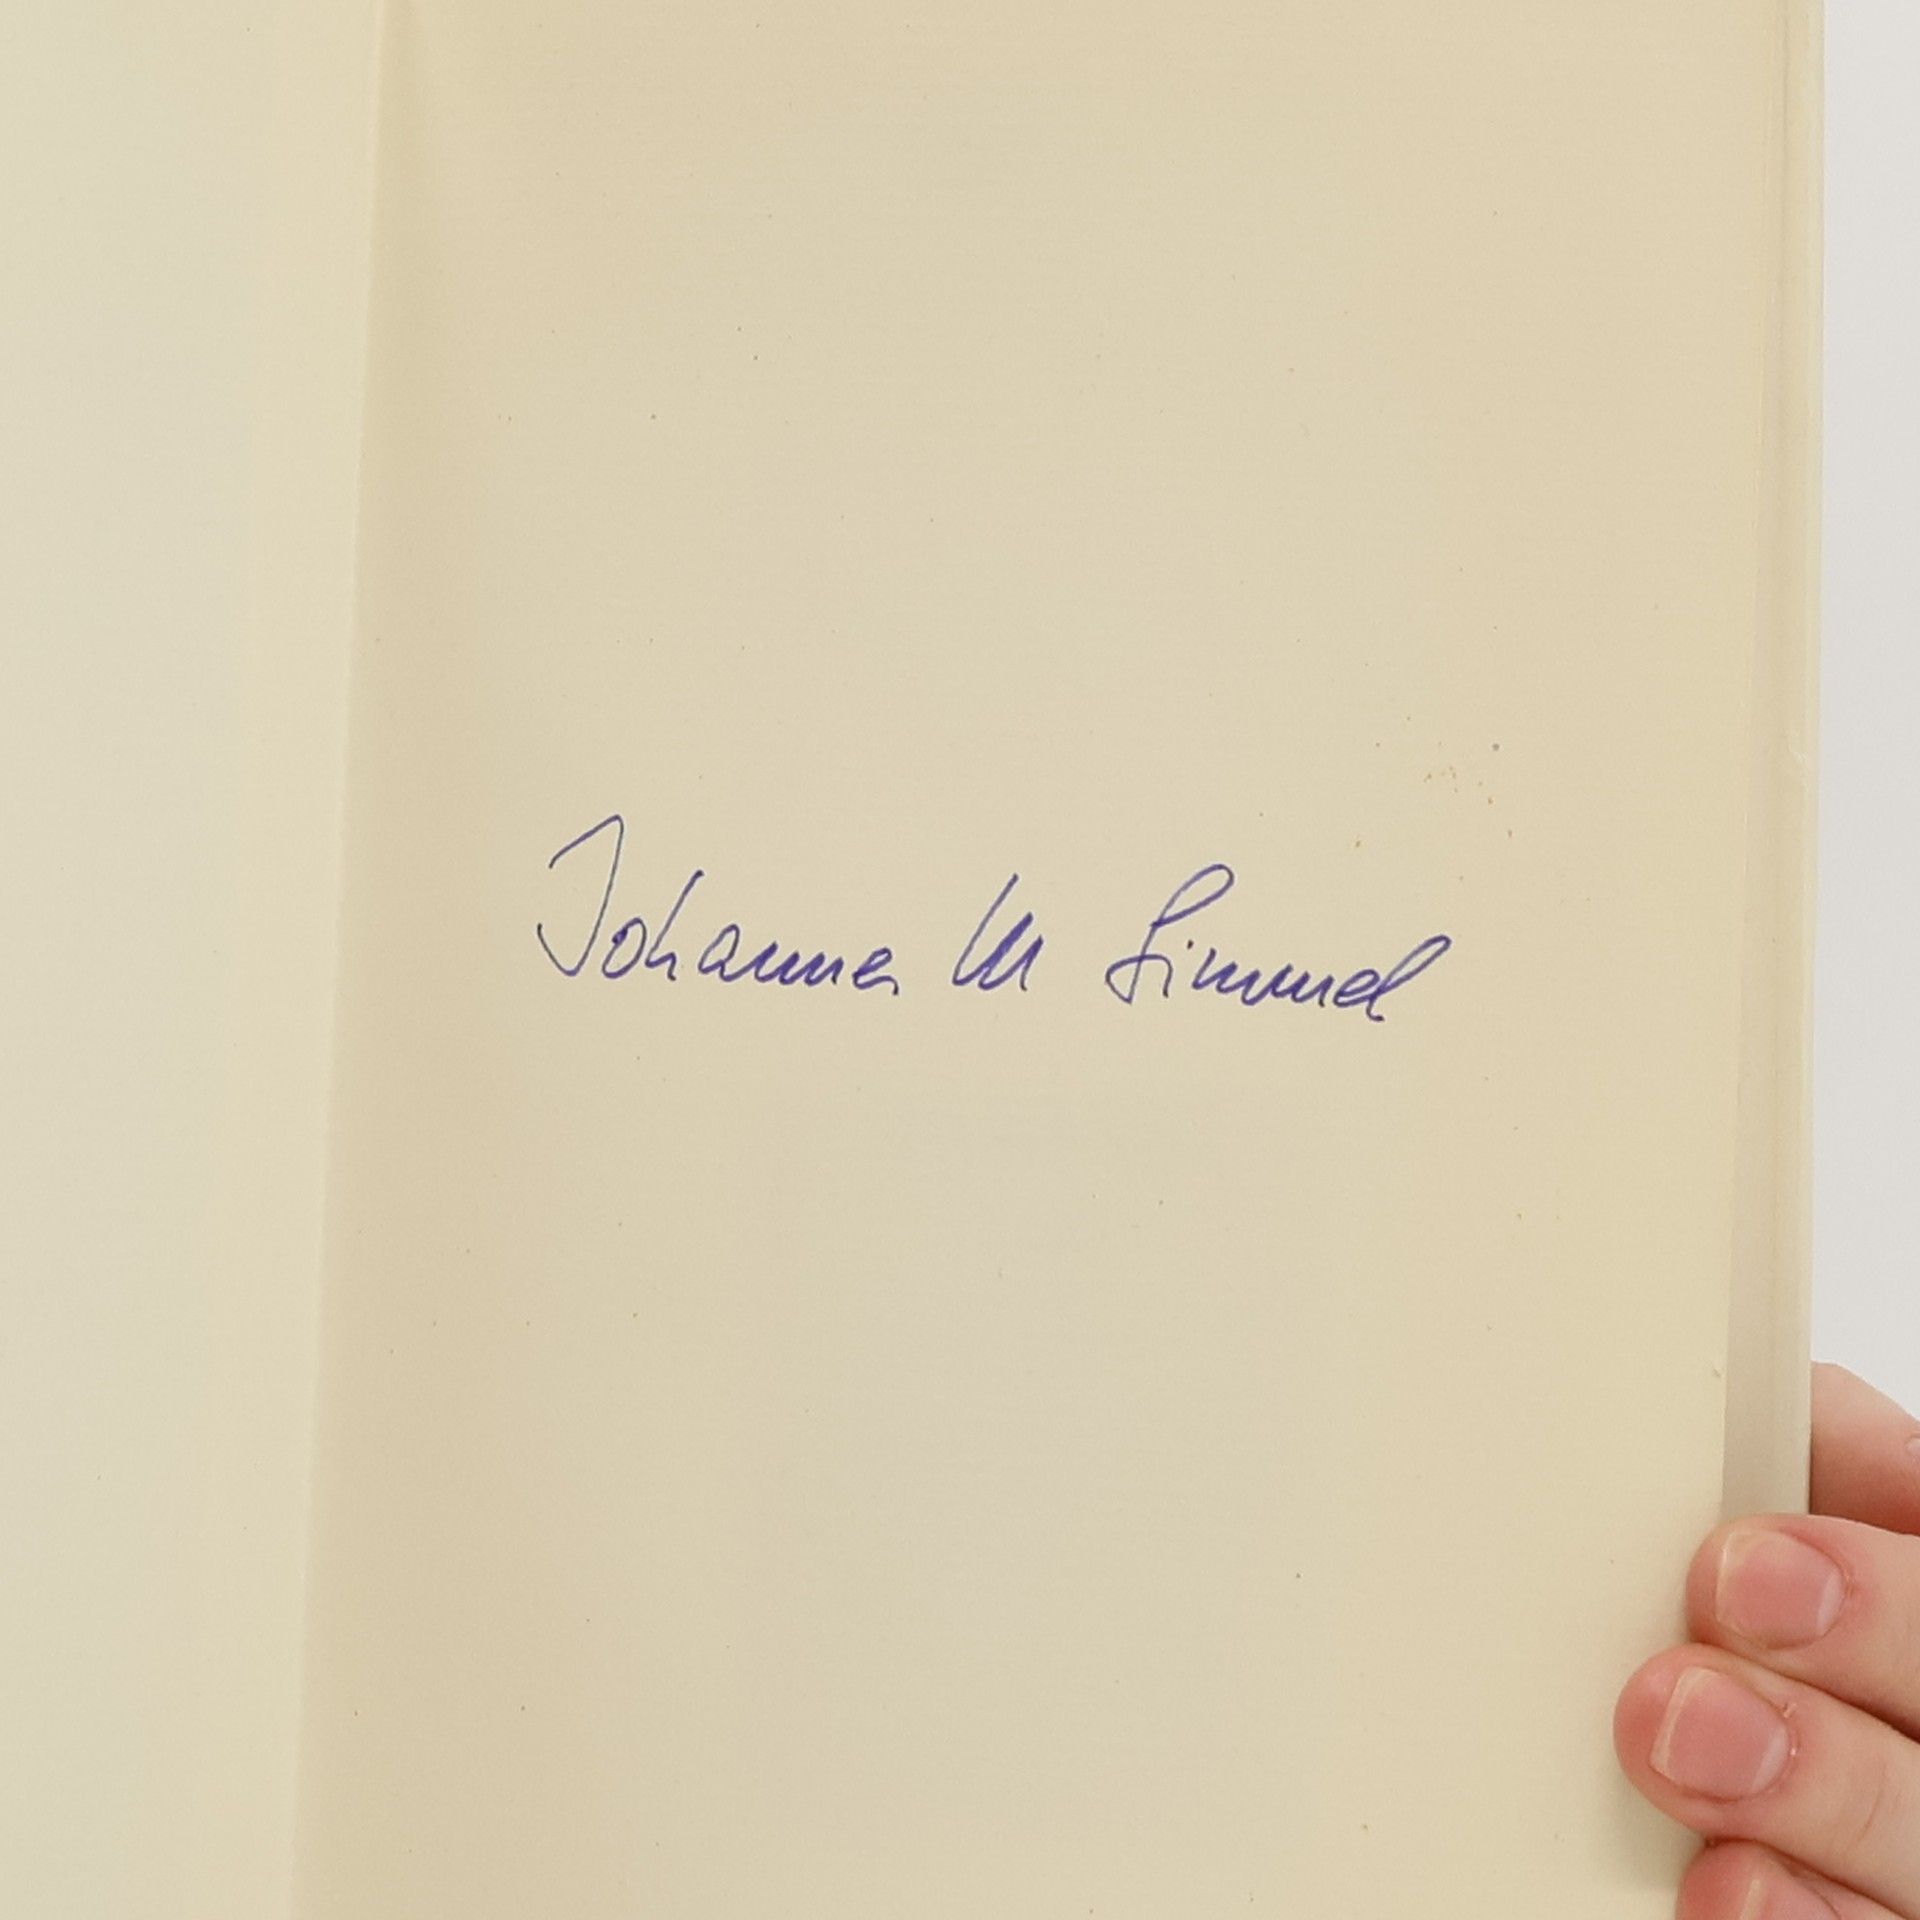 Johannes M Simmel